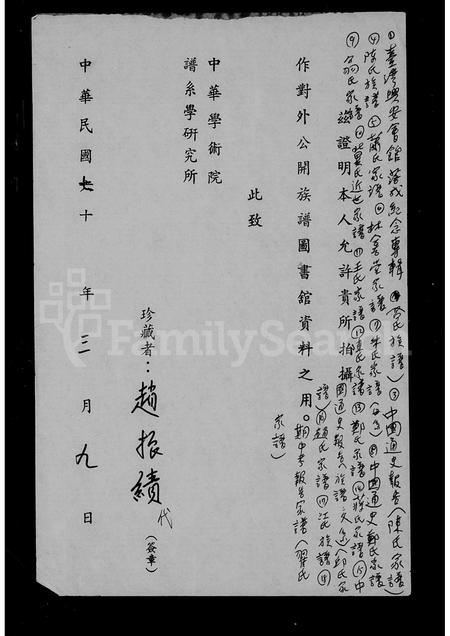 ①臺灣興安會館落成紀念專輯 ②黃氏族譜 ③中國通史報告(陳氏家譜)
④陳氏族譜 ⑤蕭氏家譜 ⑥林金堂家譜 ⑦朱氏家譜 ⑧中國通史鄭氏家譜
⑨翁氏家譜 ⑩莫氏近世家譜 ⑪王氏家譜 ⑫卓氏家譜 ⑬鄭氏家譜 ⑭蘇氏家譜 ⑮中
茲證明本人允許貴所拍攝
國通史報告(族譜文色)(邱氏家
譜) ⑯趙氏家譜 ⑰江氏族譜 ⑱
作對外公開族譜圖書館資料之用。
期中考報告家譜(翟氏
家譜)
此致
中華學術院
譜系學研究所
珍藏者:趙振績代(簽章)
中華民國七十年三月九日
FamilySearch